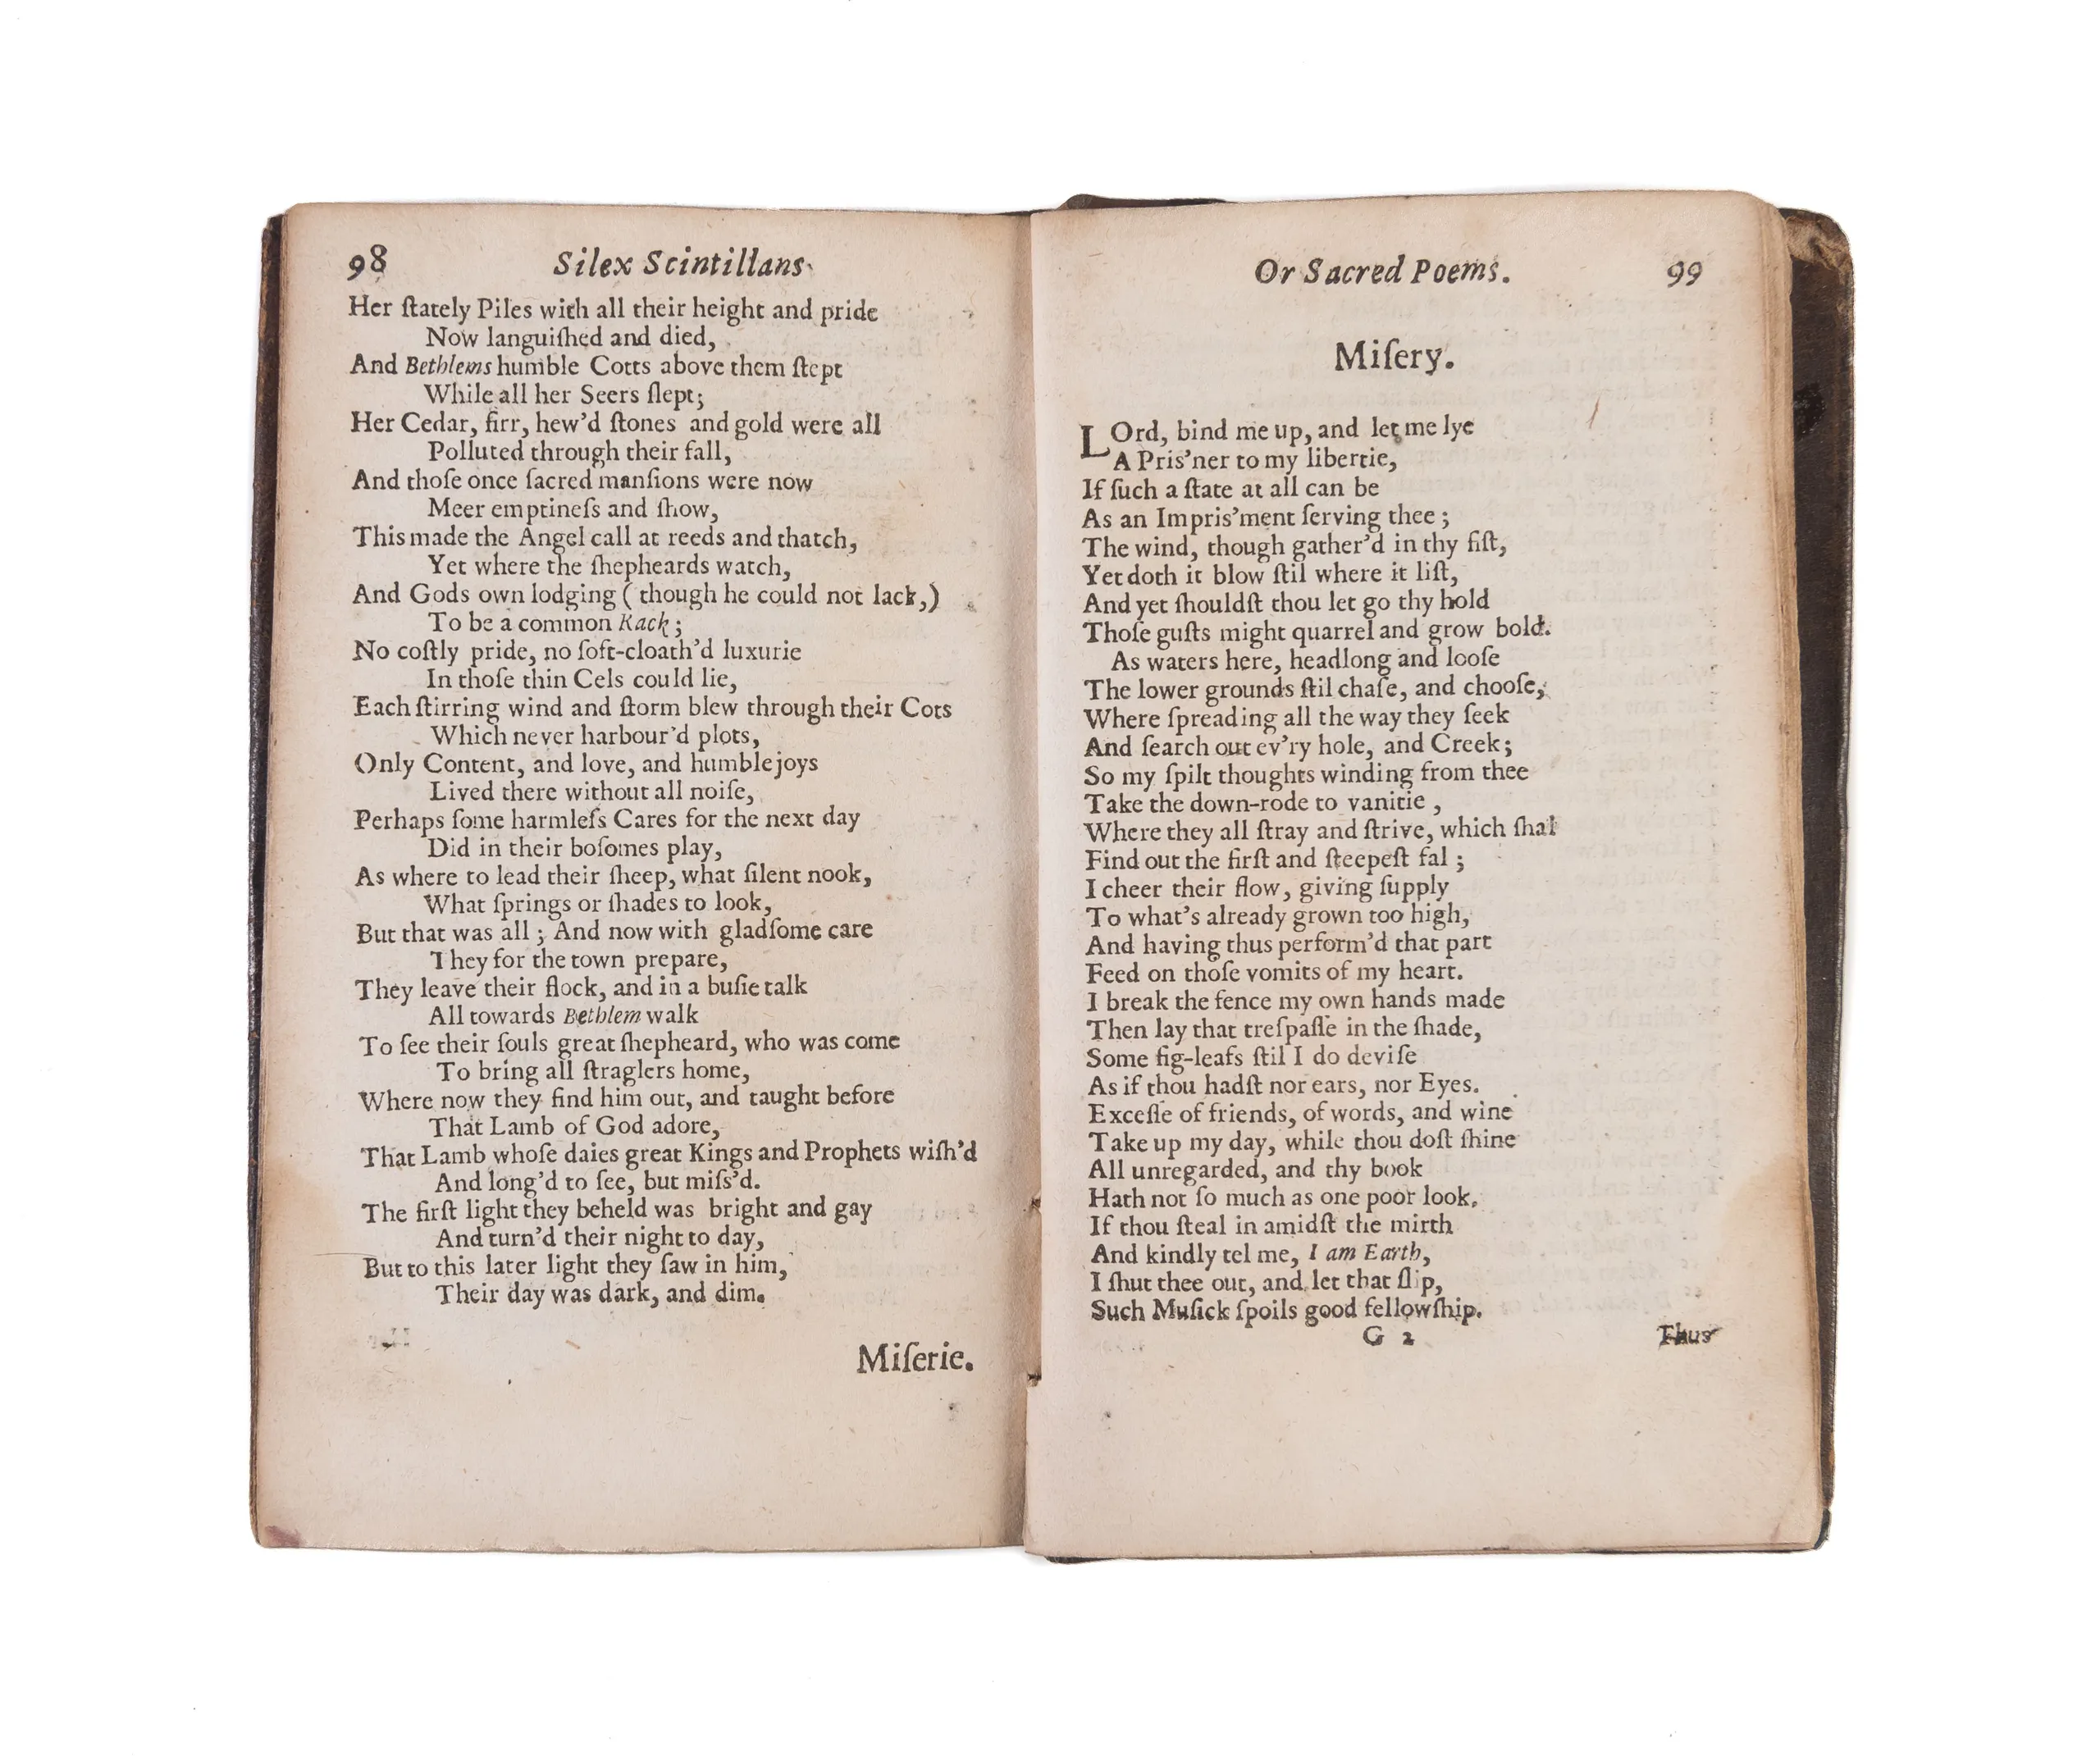 98 Silex Scintillans
Her ſtately Piles with all their height and pride
Now languiſhed and died,
And Bethlems humble Cotts above them ſtept
While all her Seers ſlept;
Her Cedar, firr, hew'd ſtones and gold were all
Polluted through their fall,
And thoſe once ſacred manſions were now
Meer emptineſs and ſhow,
This made the Angel call at reeds and thatch,
Yet where the ſhepheards watch,
And Gods own lodging (though he could not lack,)
To be a common Rack;
No coſtly pride, no ſoft-cloath'd luxurie
In thoſe thin Cels could lie,
Each ſtirring wind and ſtorm blew through their Cots
Which never harbour'd plots,
Only Content, and love, and humble joys
Lived there without all noiſe,
Perhaps ſome harmleſs Cares for the next day
Did in their boſomes play,
As where to lead their ſheep, what ſilent nook,
What ſprings or ſhades to look,
But that was all; And now with gladſome care
They for the town prepare,
They leave their flock, and in a buſie talk
All towards Bethlem walk
To ſee their ſouls great ſhepheard, who was come
To bring all ſtraglers home,
Where now they find him out, and taught before
That Lamb of God adore,
That Lamb whoſe daies great Kings and Prophets wiſh'd
And long'd to ſee, but miſs'd.
The firſt light they beheld was bright and gay
And turn'd their night to day,
But to this later light they ſaw in him,
Their day was dark, and dim.
Miſerie.
Or Sacred Poems. 99
Miſery.
LOrd, bind me up, and let me lye
A Pris'ner to my libertie,
If ſuch a ſtate at all can be
As an Impris'ment ſerving thee;
The wind, though gather'd in thy fiſt,
Yet doth it blow ſtil where it liſt,
And yet ſhouldſt thou let go thy hold
Thoſe guſts might quarrel and grow bold.
As waters here, headlong and looſe
The lower grounds ſtil chaſe, and chooſe,
Where ſpreading all the way they ſeek
And ſearch out ev'ry hole, and Creek;
So my ſpilt thoughts winding from thee
Take the down-rode to vanitie,
Where they all ſtray and ſtrive, which ſhal
Find out the firſt and ſteepeſt fal;
I cheer their flow, giving ſupply
To what's already grown too high,
And having thus perform'd that part
Feed on thoſe vomits of my heart.
I break the fence my own hands made
Then lay that treſpaſſe in the ſhade,
Some fig-leafs ſtil I do deviſe
As if thou hadſt nor ears, nor Eyes.
Exceſſe of friends, of words, and wine
Take up my day, while thou doſt ſhine
All unregarded, and thy book
Hath not ſo much as one poor look.
If thou ſteal in amidſt the mirth
And kindly tel me, I am Earth,
I ſhut thee out, and let that ſlip,
Such Muſick ſpoils good fellowſhip.
G 2 Thus